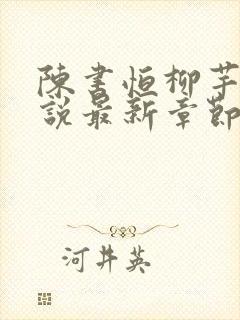 陳書恒柳芊
說最新章節
河井英